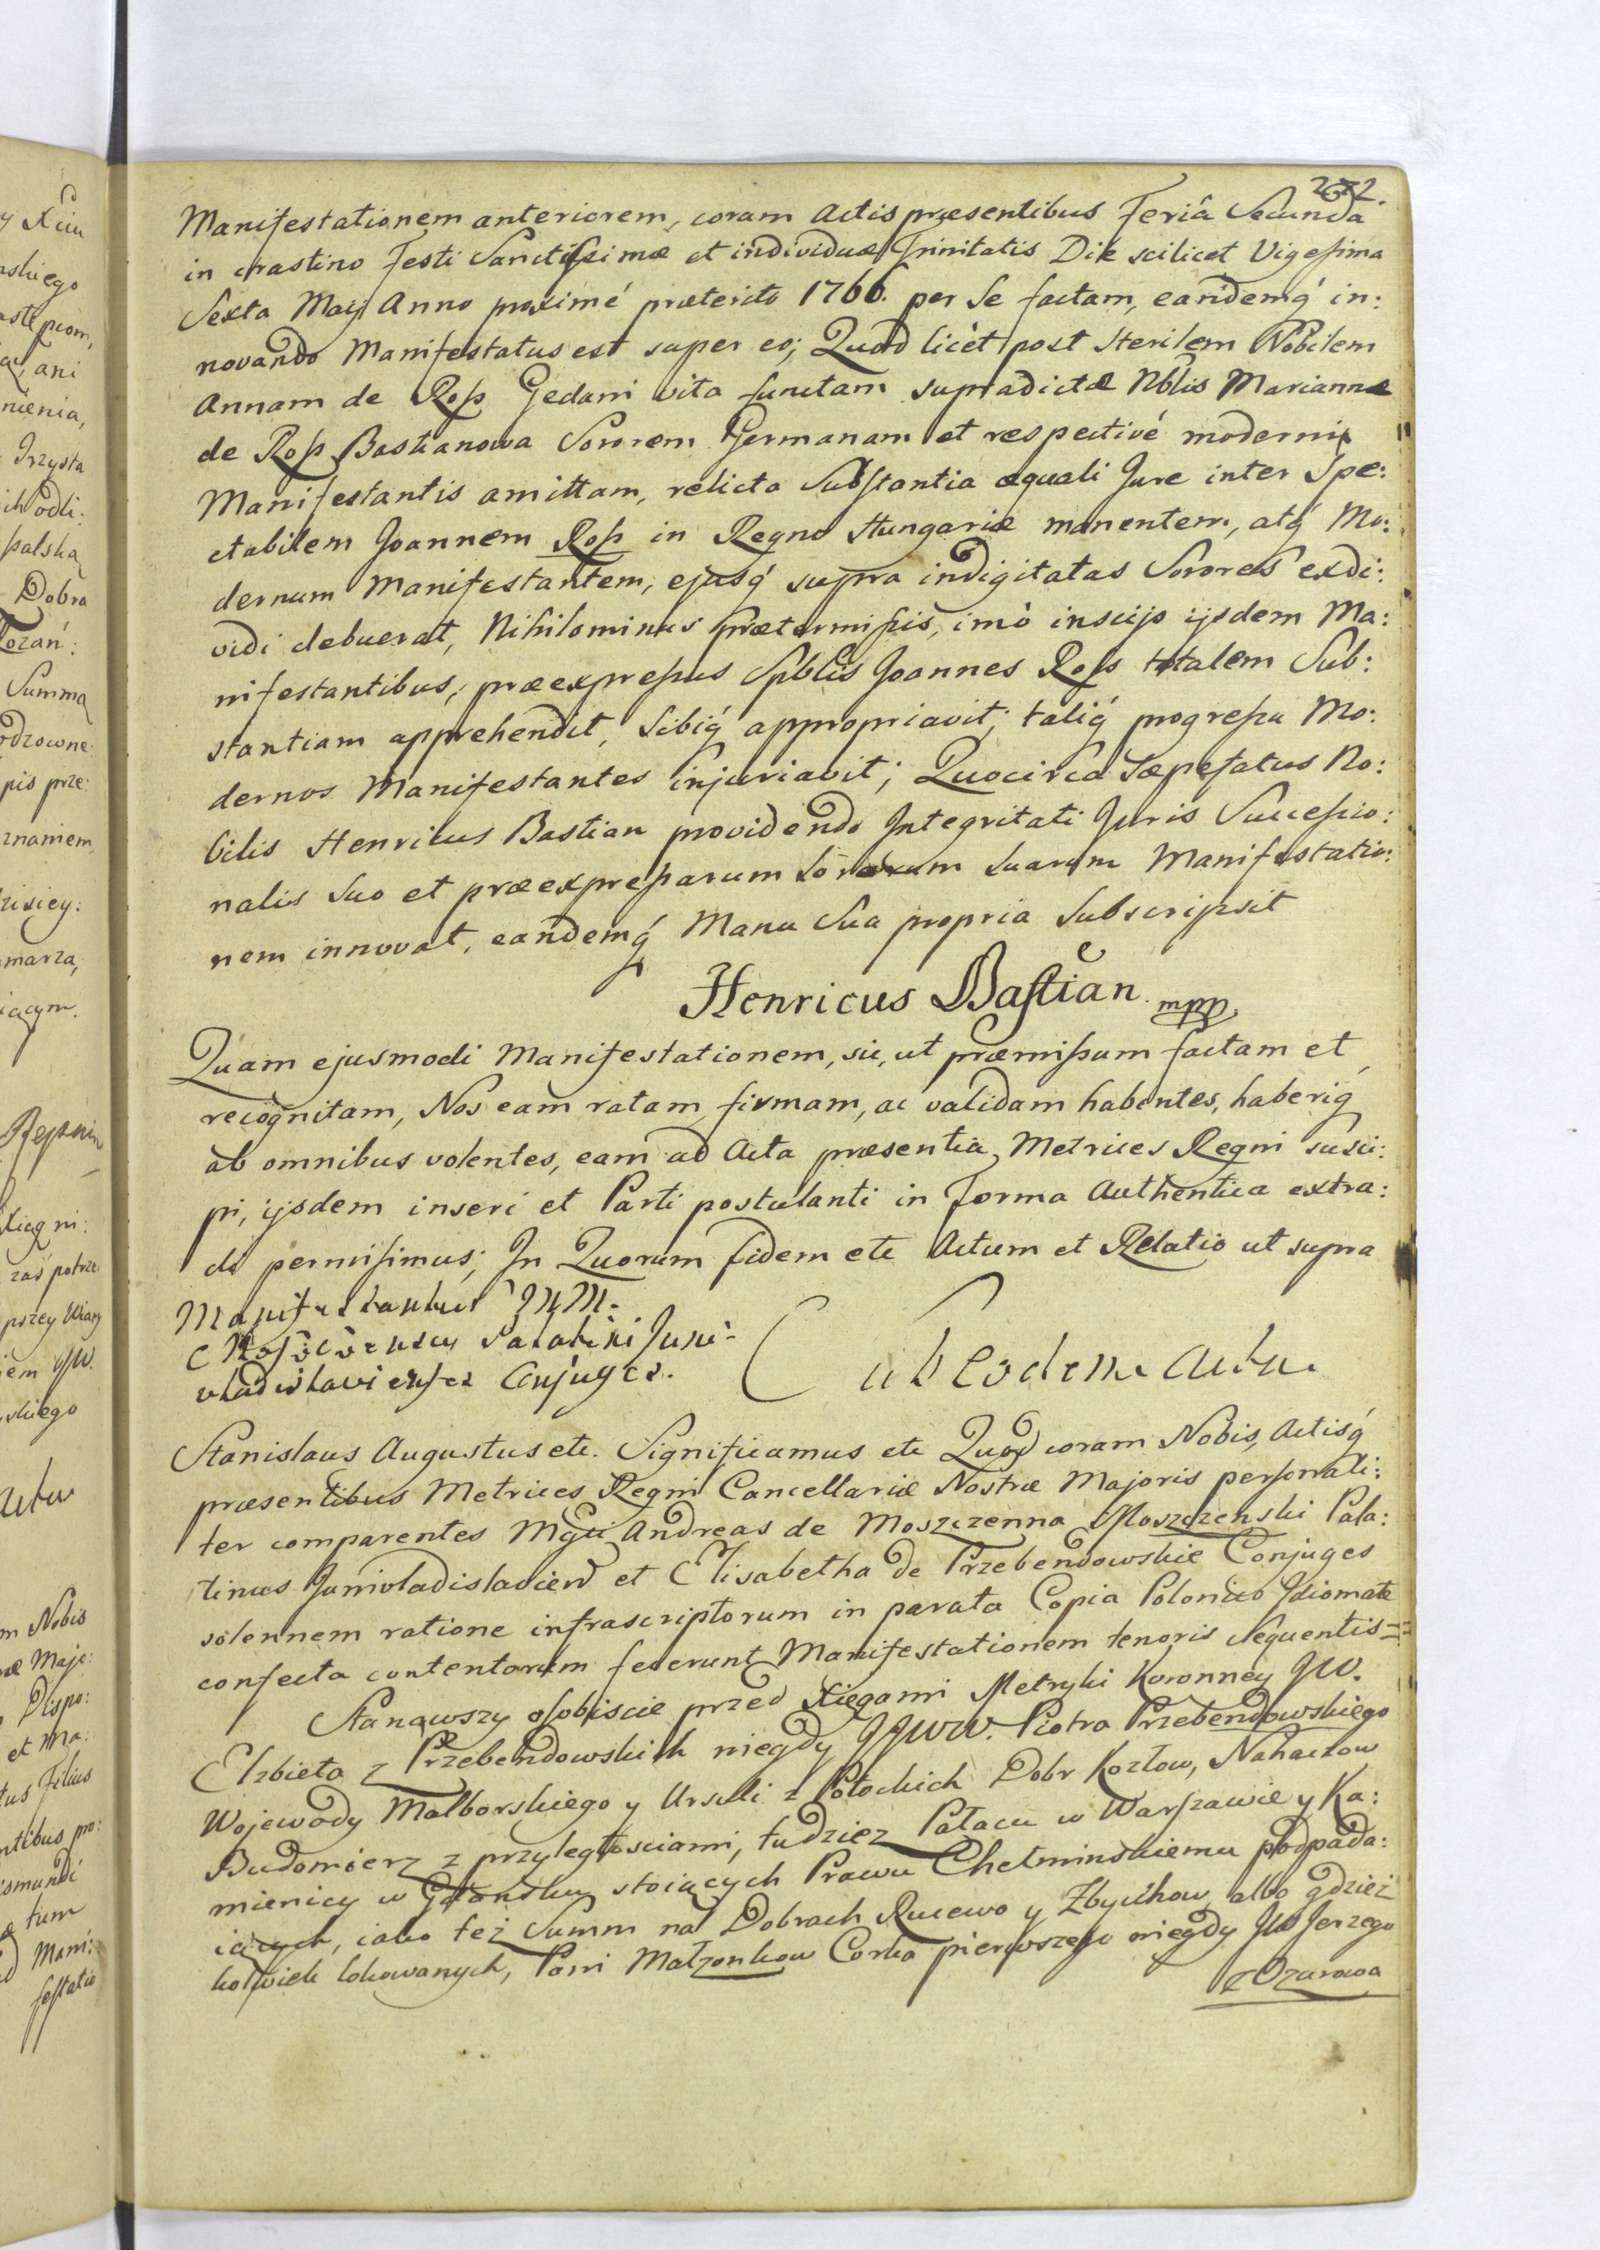 272.
Manifestationem anteriorem, coram Actis præsentibus Feriâ Secunda
in crastino Festi Sanctissimæ et individuæ Trinitatis Die scilicet Vigesima
Sexta Maij Anno proximé præterito 1766. per Se factam, eandemq́ in:
novando Manifestatus est super eo; Quod licèt post sterilem Nobilem
Annam de Roß Gedani vita functam supradictæ Nblis Mariannæ
de Roß Bastianowa Sororem Germanam et respectivé moderni
Manifestantis amittam, relicta Substantia æquali Jure inter Spe:
ctabilem Joannem Roß in Regno Hungariæ manentem, atq́ Mo:
dernum Manifestantem, ejusq́ supra indigitatas Sorores exdi:
vidi debuerat, Nihilominus prætermißis, imò inscijs ijsdem Ma:
nifestantibus, præexpreßus Spblis Joannes Roß totalem Sub:
stantiam apprehendit, Sibiq́ appropriavit; taliq́ progreßu Mo:
dernos Manifestantes injuriavit; Quocirca Sæpefatus No:
bilis Henricus Bastian providendo Integritati Juris Succeßio:
nalis Suo et præexpreßarum Sororum Suarum Manifestatio:
nem innovat, eandemq́ Manu Sua propria Subscripsit
Henricus Bastian mpp.
Quam ejusmodi Manifestationem, sic, ut præmißum factam et
recognitam, Nos eam ratam, firmam, ac validam habentes, haberiq́
ab omnibus volentes, eam ad Acta præsentia Metrices Regni susci:
pi, ijsdem inseri et Parti postulanti in Forma Authentica extra:
di permisimus; In Quorum fidem etc Actum et Relatio ut supra
MM.
Palatini Juni-
vladislavienses Conjuges.
Eodem Actu.
Stanislaus Augustus etc. Significamus etc Quod coram Nobis, Actisq́
præsentibus Metrices Regni Cancellariæ Nostræ Majoris personali:
ter comparentes Mgci Andreas de Moszczenna Moszczenski Pala:
tinus Junivladislavien et Elisabetha de Przebendowskie Conjuges
solennem ratione infrascriptorum in parata Copia Polonico Idiomate
confecta contentorum fecerunt Manifestationem tenoris sequentis =
Stanąwszy osobiscie przed Xięgami Metryki Koronney JW.
Elzbieta z Przebendowskich niegdy JJWW. Piotra Przebendowskiego
Wojewody Malborskiego y Urszuli z Potockich Dobr Kozłow, Nahaczow
Budomierz z przyległosciami, tudziez Pałacu w Warszawie y Ka:
mienicy w Gdansku stoiących Prawu Chełminskiemu podpada:
iących, iako też Summ na Dobrach Rucewo y Zbychow, albo gdzież
kolwiek lokowanych, Pani Małzonkow Corka pierwszego niegdy JW Jerzego
z Ozarowa